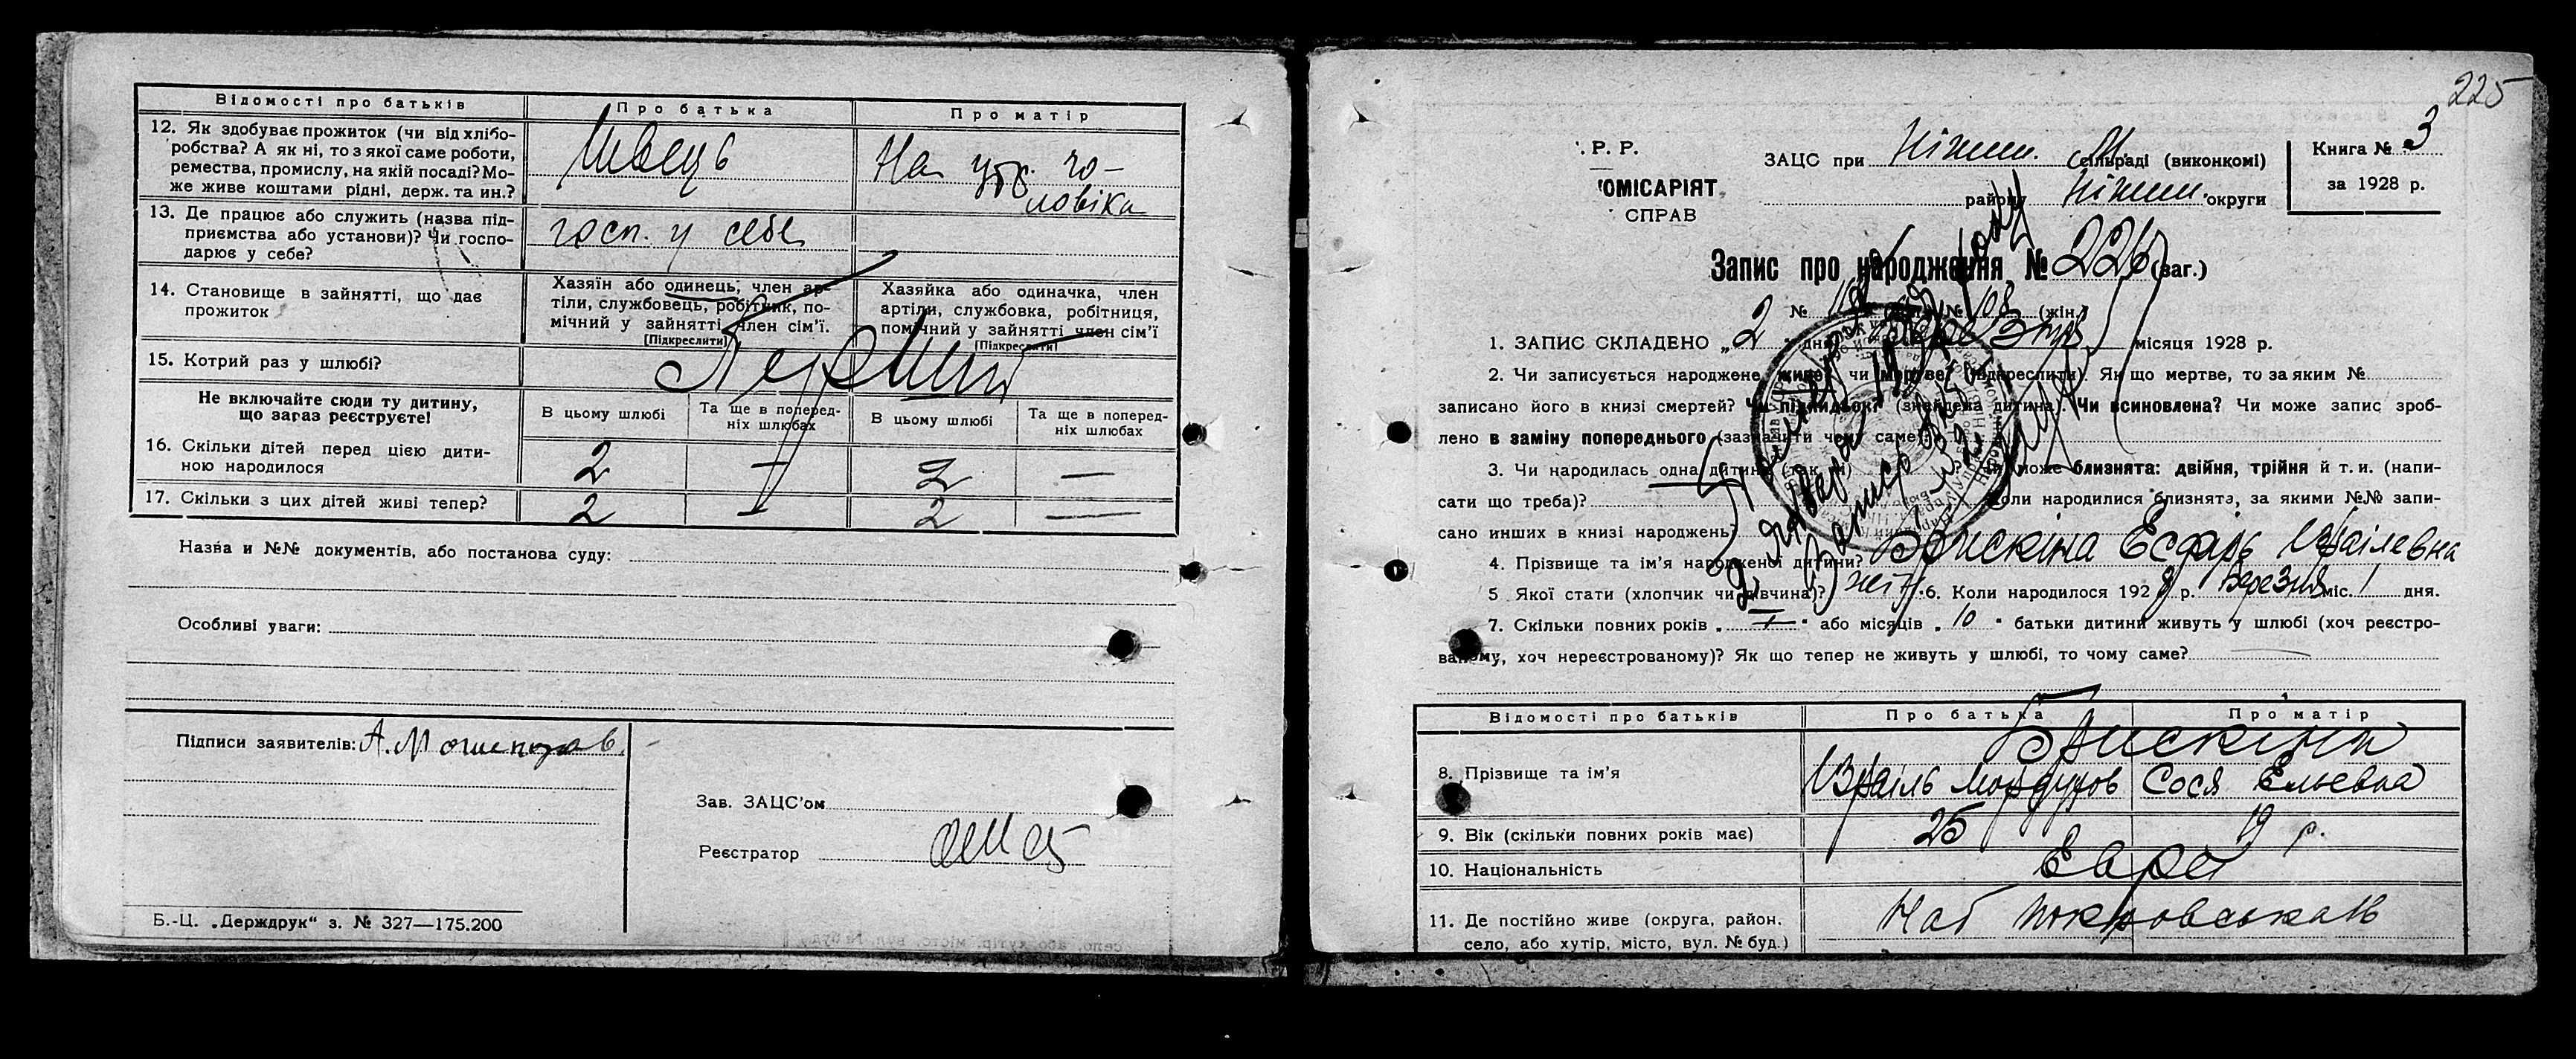 Відомості про батьків
Про батька
Про матір
12. Як здобуває прожиток (чи від хлібо-
робства? А як ні, то з якої саме роботи,
ремества, промислу, на якій посаді? Мо-
же живе коштами рідні, держ. та ин.?
Швець
На утр. чо-
ловіка
13. Де працює або служить (назва під-
приємства або установи)? Чи госпо-
дарює у себе?
госп. у себе
14. Становище в зайнятті, що дає
прожиток
Хазяїн або одинець, член ар-
тіли, службовець, робітник, по-
мічний у зайнятті член сім'ї.
[Підкреслити]
Хазяйка або одиначка, член
артіли, службовка, робітниця,
помічний у зайнятті член сім'ї
[Підкреслити]
15. Котрий раз у шлюбі?
Перший
Не включайте сюди ту дитину,
що зараз реєструєте!
В цьому шлюбі
Та ще в поперед-
ніх шлюбах
В цьому шлюбі
Та ще в поперед-
ніх шлюбах
16. Скільки дітей перед цією дити-
ною народилося
2 — 2 —
17. Скільки з цих дітей живі тепер?
2 — 2 —
Назва и №№ документів, або постанова суду:
Особливі уваги:
Підписи заявителів:
Зав. ЗАЦС'ом
Реєстратор
Б.-Ц. „Держдрук“ з. № 327—175.200
225
. Р. Р.
ОМІСАРІЯТ
СПРАВ
ЗАЦС при Ніжин. М. сільраді (виконкомі)
району Ніжин. округи
Книга № 3
за 1928 р.
Запис про народження № 226 (заг.)
№ № 108 (жін.)
1. ЗАПИС СКЛАДЕНО „2 дня березня місяця 1928 р.
2. Чи записується народжене живе, чи мертве (підкреслити). Як що мертве, то за яким №
записано його в книзі смертей? Чи підкидьок? (знайдена дитина). Чи всиновлена? Чи може запис зроб-
лено в заміну попереднього (зазначити чому саме).
3. Чи народилась одна дитина (так, ні) ? Чи може близнята: двійня, трійня й т. и. (напи-
сати що треба)? Коли народилися близнята, за якими №№ запи-
сано инших в книзі народжень?
4. Прізвище та ім'я народженої дитини? Брискіна Есфирь Ізраілевна
5 Якої стати (хлопчик чи дівчина)? жін. 6. Коли народилося 1928 р. березня міс. 1 дня.
7. Скільки повних років „ — “ або місяців „ 10 “ батьки дитини живуть у шлюбі (хоч реєстро-
ваному, хоч нереєстрованому)? Як що тепер не живуть у шлюбі, то чому саме? —
Відомості про батьків
Про батька
Про матір
8. Прізвище та ім'я
Брискіни
Ізраіль Мордухов
Сося Ельевна
9. Вік (скільки повних років має)
25
19 р.
10. Національність
Євреї
11. Де постійно живе (округа, район.
село, або хутір, місто, вул. № буд.)
Наб Покровська 16